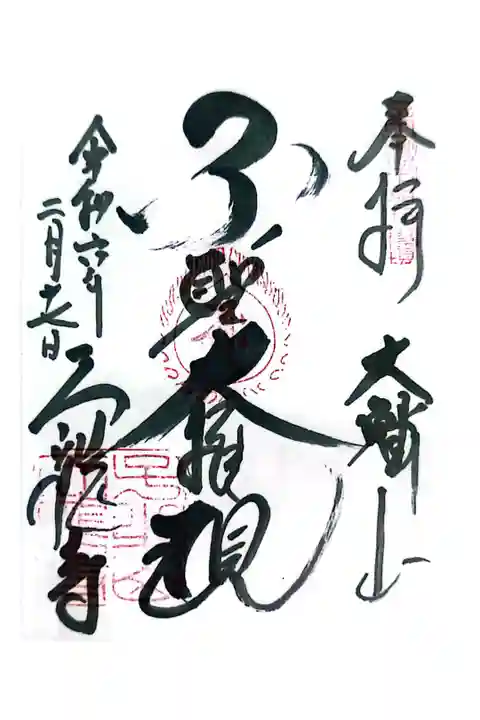 奉拝
大鱗山
子ノ聖大権現
令和六年
二月
日
天龍寺